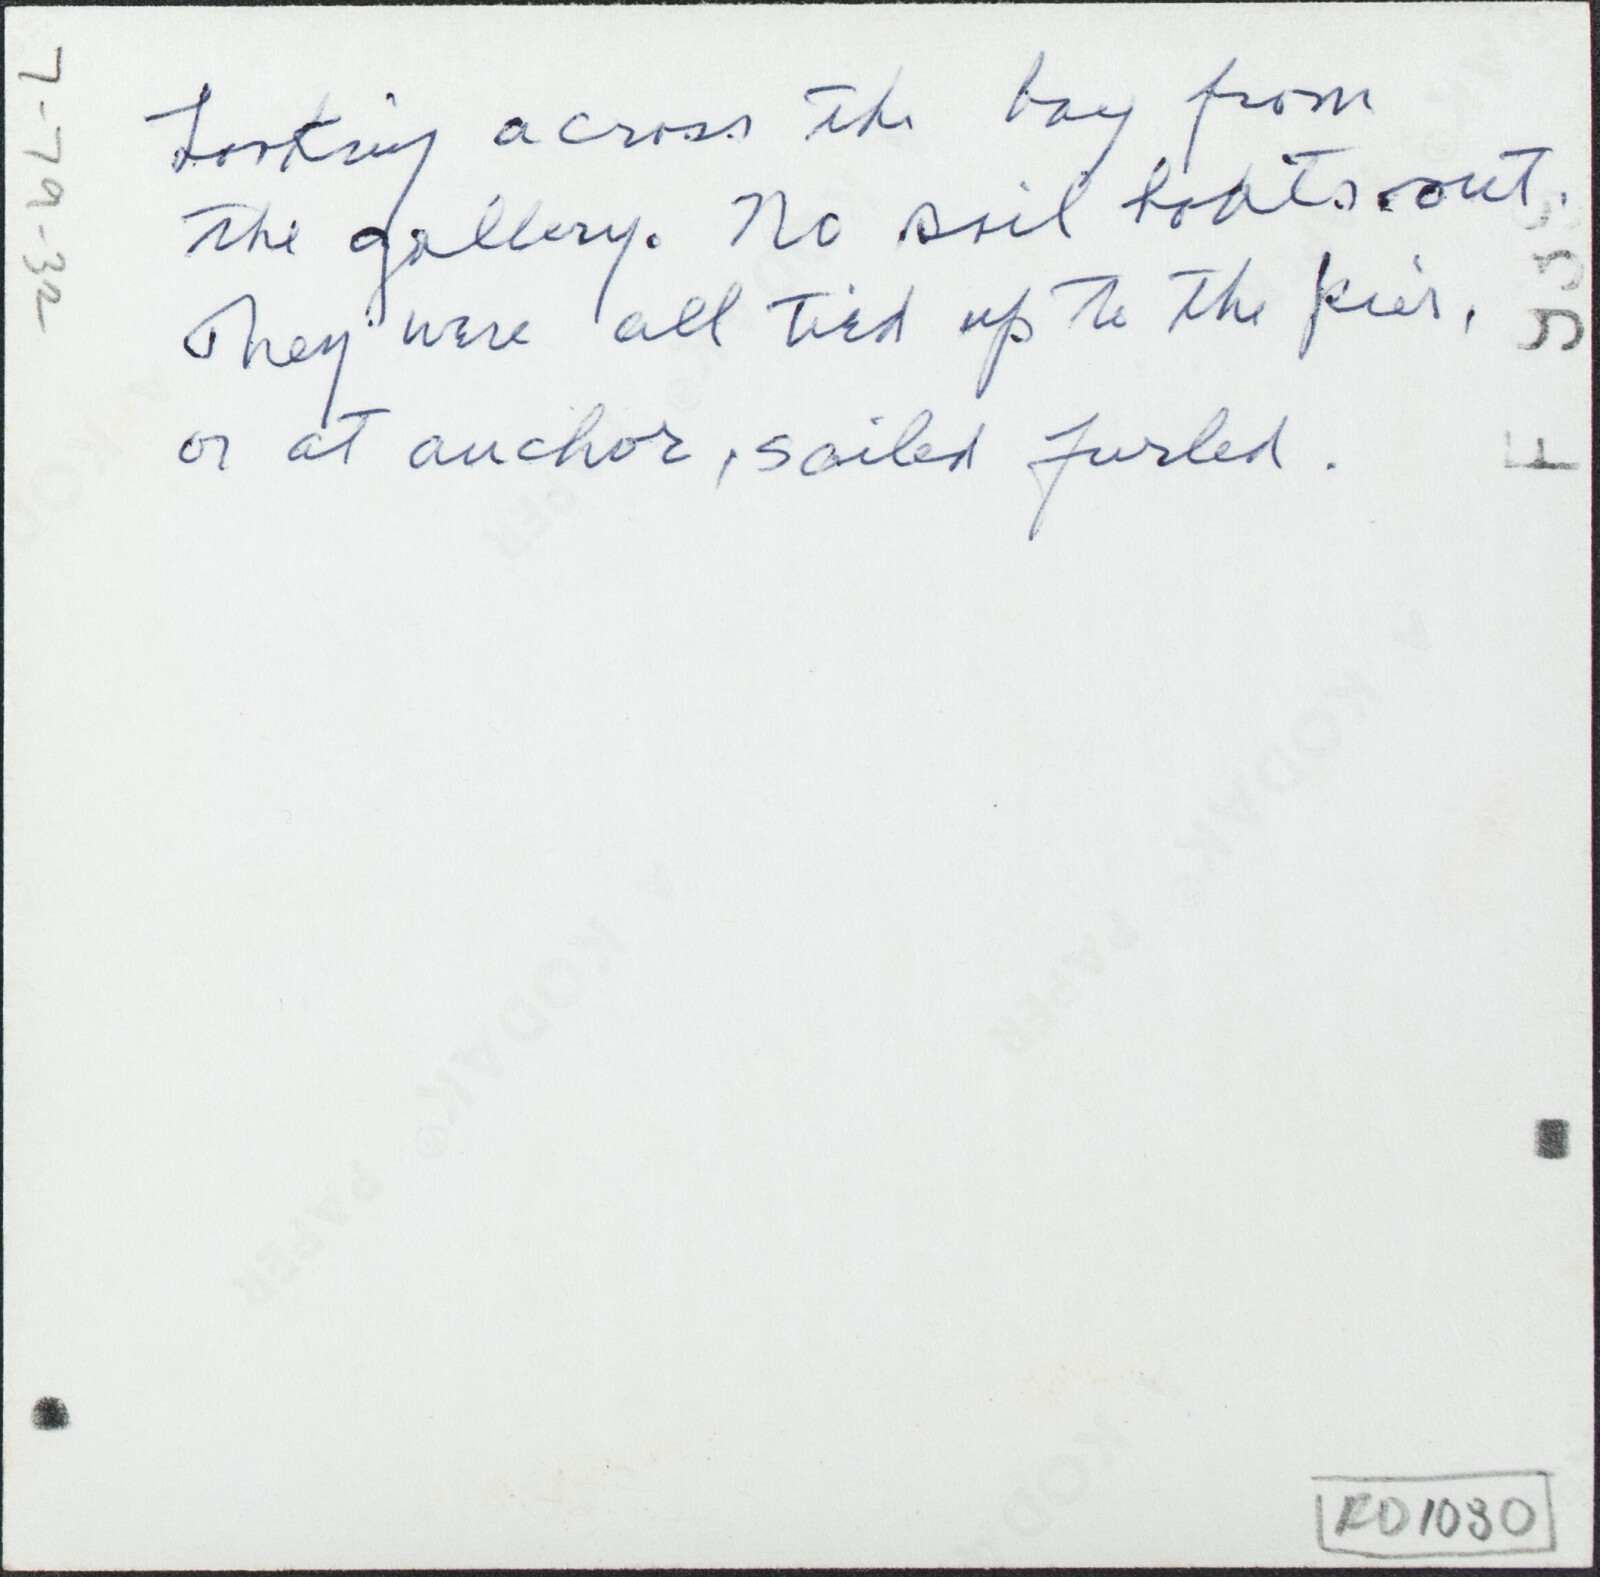 Looking across the bay from
the gallery. No sail boats out.
They were all tied up to the pier,
or at anchor, sailed furled.
7-79-32
A KODAK® PAPER
A KODAK® PAPER